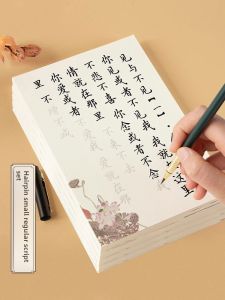 见与不见【一】
你见或者不见我 我就在这里
不悲不喜 你念或者不念我
情就在那里 不来不去
你爱或者不爱我 爱就在那
里 不增不减
Hairpin small regular script
set